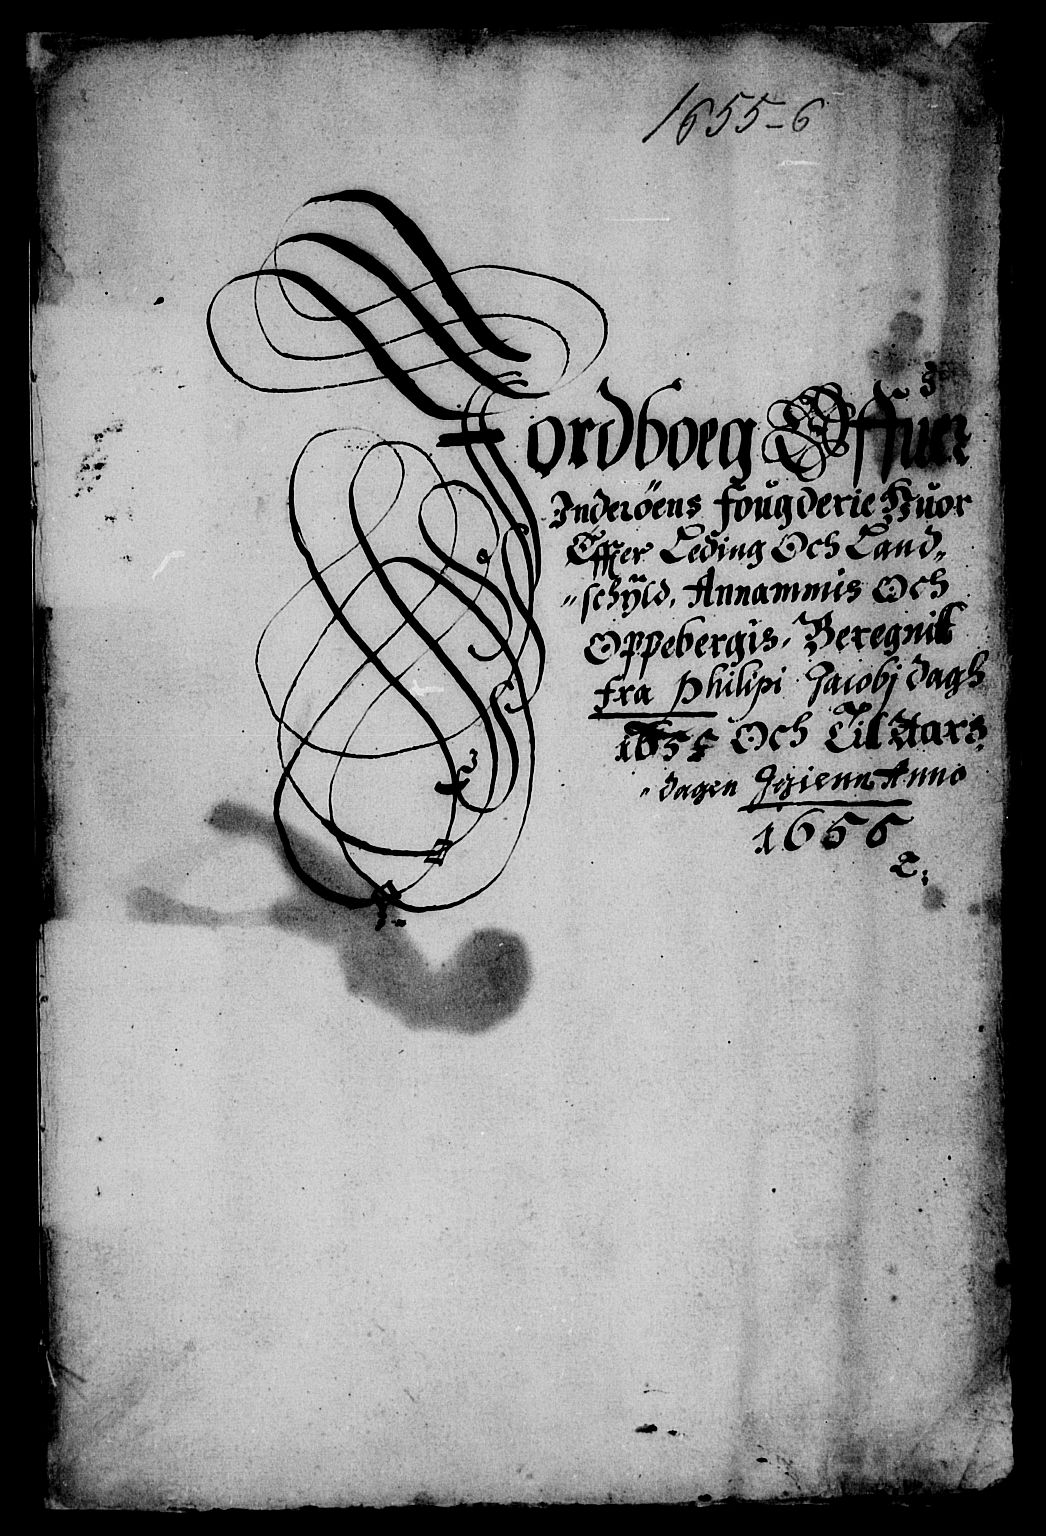 1655-6
Jordboeg Offuer
Inderöens fougderie Huor
Effter Leding Och Land-
schyld, Annammis Och
Oppebergis, Beregnitt
fra Philipi Jacobj dagh
1655 Och Till Aars
dagen Igienn Anno
1656